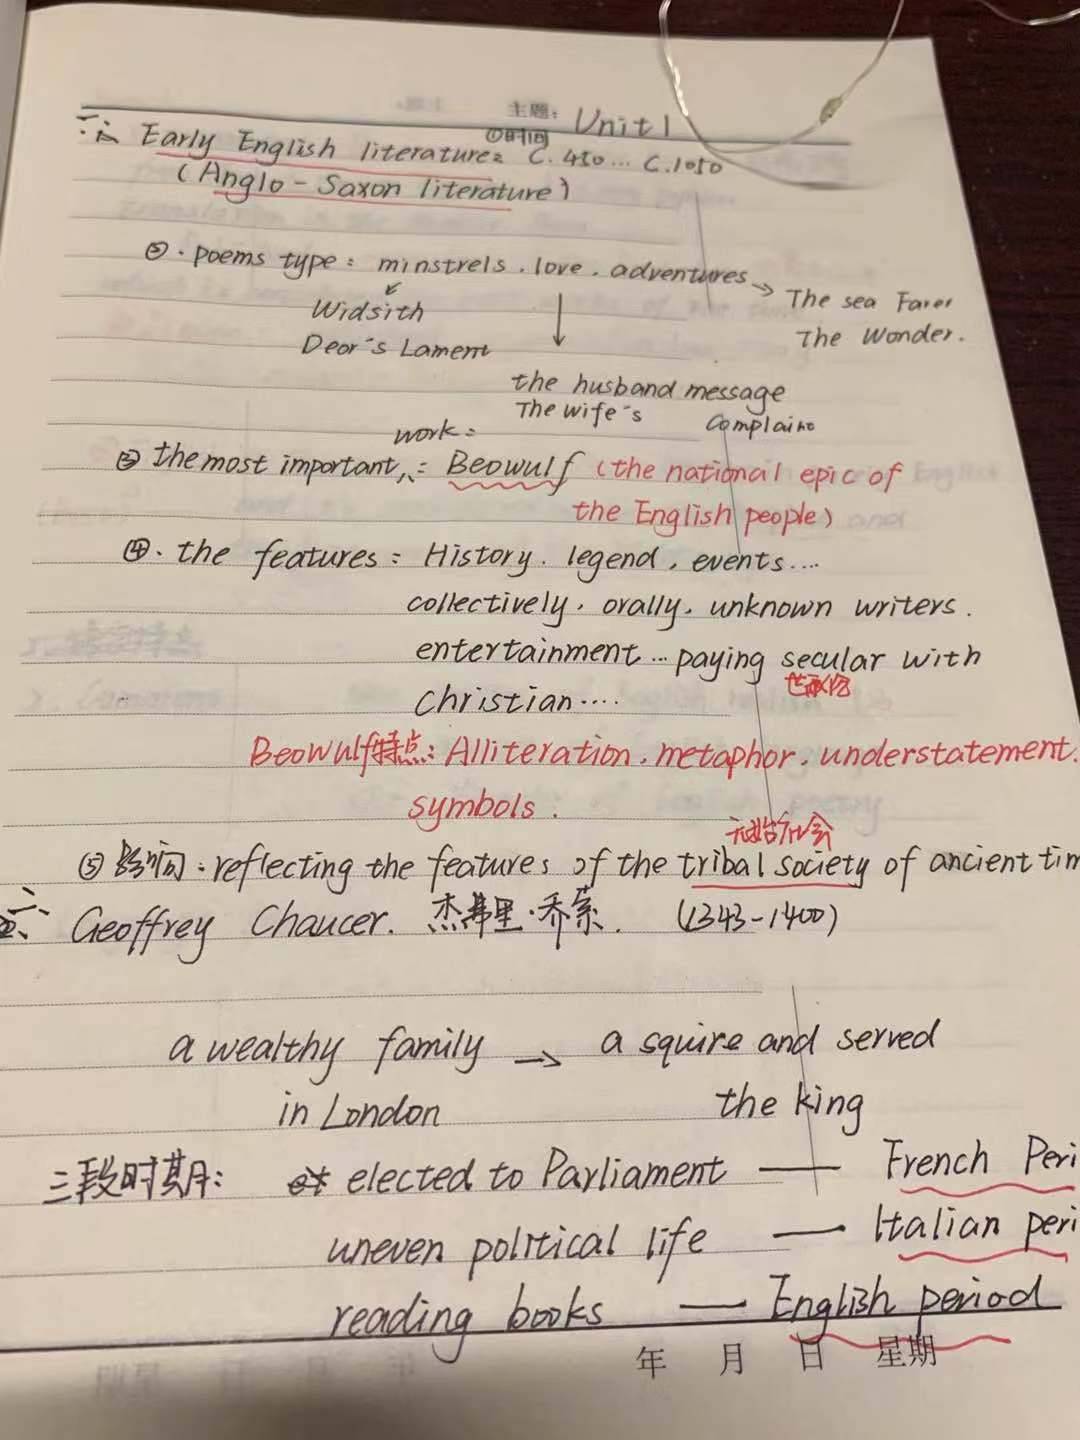 主题: Unit 1
一、Early English literature: ①时间 C.450... C.1050
(Anglo-Saxon literature)
②.poems type: minstrels. love. adventures → The sea Farer
Widsith
The Wonder.
Deor's Lament
the husband message
The wife's Complaint
③ the most important work: Beowulf (the national epic of
the English people)
④. the features: History. legend, events....
collectively, orally, unknown writers.
entertainment...paying secular with
Christian....
Beowulf特点: Alliteration. metaphor. understatement.
symbols.
原始社会
⑤影响.reflecting the features of the tribal society of ancient tim
二、Geoffrey Chaucer. 杰弗里.乔叟. (1343-1400)
a wealthy family → a squire and served
in London the king
三段时期: elected to Parliament — French Peri
uneven political life — Italian peri
reading books — English period
年 月 日 星期